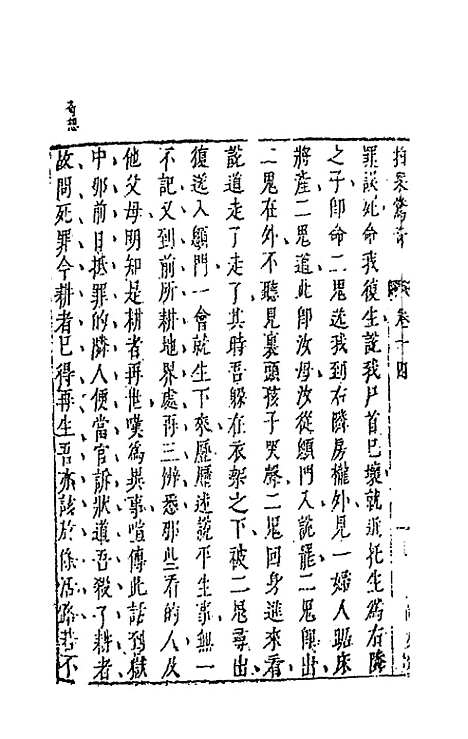 拍案驚奇 卷十四
罪誤死命我復生說我尸首已壞就近托生為右隣
之子即命二鬼送我到右隣房櫳外見一婦人臨床
將產二鬼道此即汝母汝從顖門入說罷二鬼即出
二鬼在外不聽見裏頭孩子哭聲二鬼回身進來看
說道走了走了其時吾躲在衣架之下被二鬼尋出
復送入顖門一會就生下來歷歷述說平生事無一
不記又到前所耕地界處再三辨悉那些看的人及
他父母明知是耕者再世嘆為異事喧傳此話到獄
中那前日抵罪的隣人便當官訴狀道吾殺了耕者
故問死罪今耕者已得再生吾亦該放條活路若不
奇想